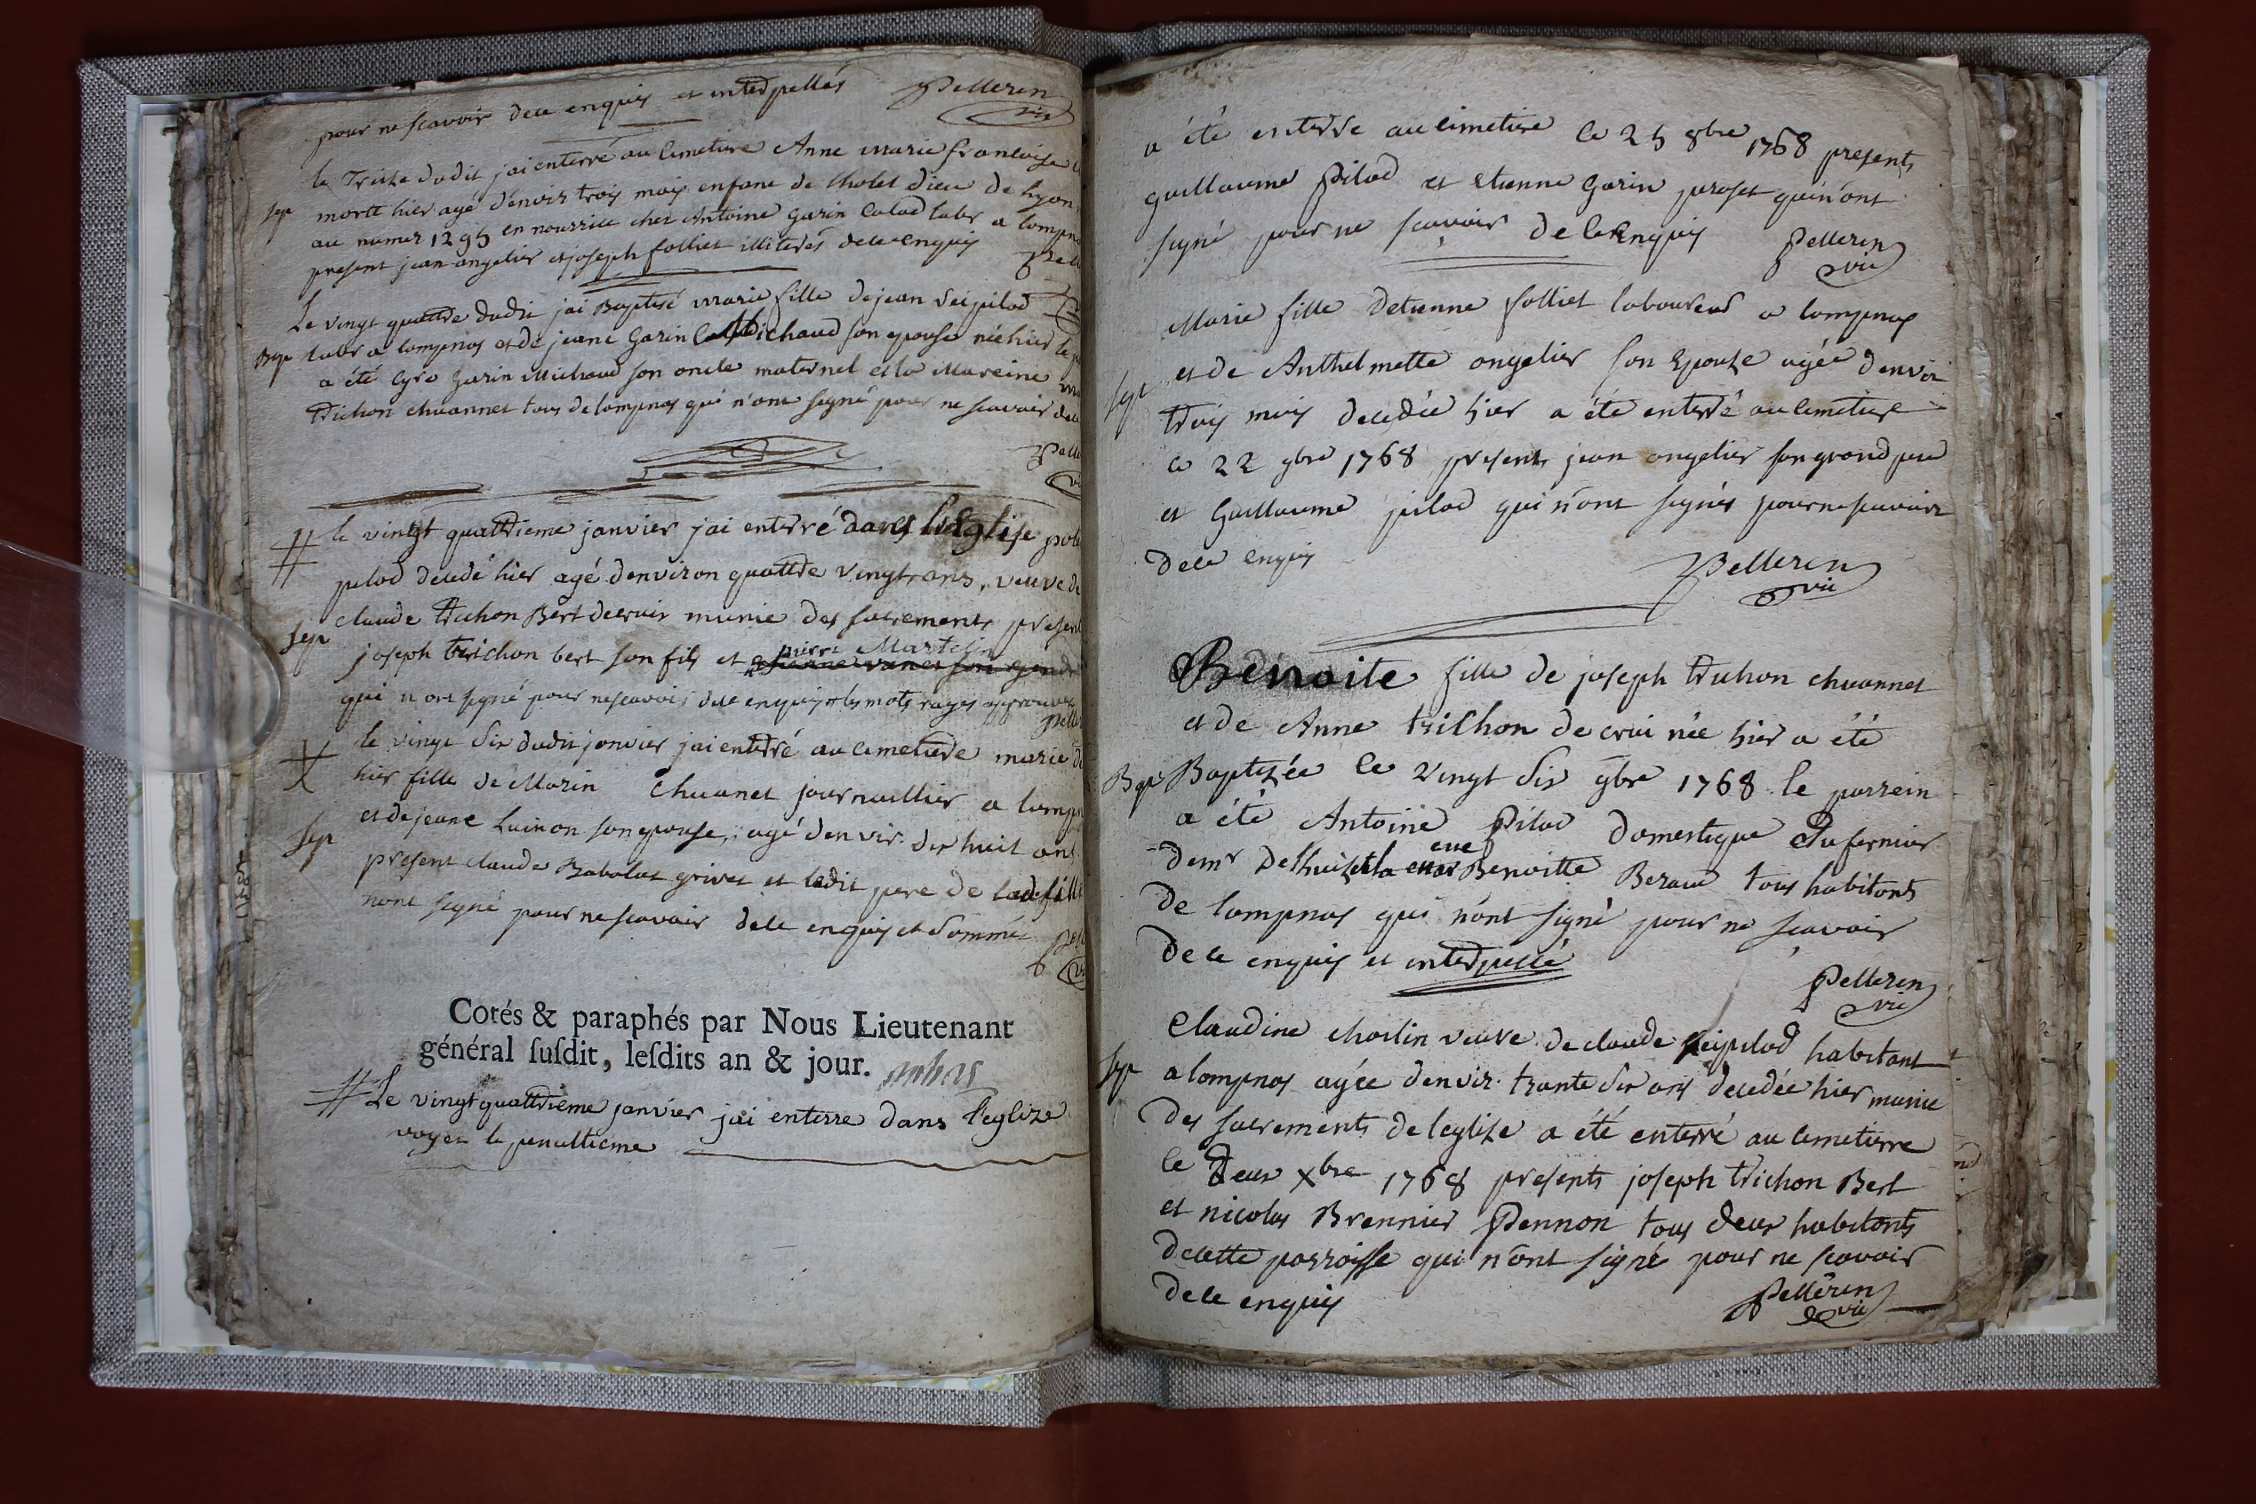 pour ne scavoir dece enquis et interpellés Pellerin
vic
le Treize dudit jai enterré au Cimetiere Anne marie francoise
sep morte hier agé denvir trois mois enfant de lhotel dieu de lyon
au numer 1295 en nourrice chez Antoine Garin Calod labr a lompna
present jean angelier et joseph folliet illiterés dece enquis Pell
Le vingt quattre dudit jai Baptisé marie fille de jean Seipilod
Bap labr a lompnas et de jeane Garin Michaud son epouse née hier le p
a été Cyre Garin Michaud son oncle maternel et la Mareine ma
trichon chuannet tous de lompnas qui n'ont signé pour ne scavoir dece
Pelle
vi
# le vingt quattrieme janvier jai enterré dans l'Eglise
pilod decedé hier agé denviron quattre vingt ans, veuve de
claude trichon Bert decrui munie des sacrements present
sep joseph trichon bert son fils et pierre Martelin
qui n'ont signé pour ne scavoir dece enquis les mots rayés approuvés
Pelle
le vingt six dudit janvier jai enterré au cimetiere marie de
hier fille de Marin Chuanet journaillier a lomp
et de jeane Luinon son epouse, agé denvir. dix huit ans
sep present claude Babolat grivet et ledit pere de ladt fille
nont signé pour ne scavoir dece enquis et sommé
Pel
vi
Cotés & paraphés par Nous Lieutenant
général susdit, lesdits an & jour.
# Le vingt quattrieme janvier jai enterre dans l'eglize
voyez le penultieme
a été enterre au cimetiere le 25 8bre 1768 presents
Guillaume Pilod et etienne Garin proset qui n'ont
signé pour ne scavoir de ce enquis Pellerin
vic
Marie fille detienne folliet laboureur a lompnas
et de Anthelmette angelier son Epouze agée denvir
sep trois mois decedée hier a été enterré au cimetiere
le 22 9bre 1768 presents jean angelier son grand pere
et Guillaume pilod qui n'ont signés pour ne scavoir
dece enquis Pellerin
vic
Benoite fille de joseph trichon chuannet
et de Anne trichon decrui née hier a été
Bap Baptizée le vingt six 9bre 1768 le parrein
a été Antoine Pilod domestique du fermier
demr Delhui et la Benoitte Beraud tous habitants
de lompnas qui n'ont signé pour ne scavoir
dece enquis et interpellé
Pellerin
vic
Claudine charlin veuve de claude Seipilod habitant
sep a lompnas agée denvir. trante six ans decedée hier munie
des sacrements de leglize a été enterré au Cimetierre
le deux Xbre 1768 presents joseph trichon Bert
et nicolas Brennier Pennon tous deux habitants
decette parroisse qui n'ont signé pour ne scavoir
dece enquis Pellerin
vic